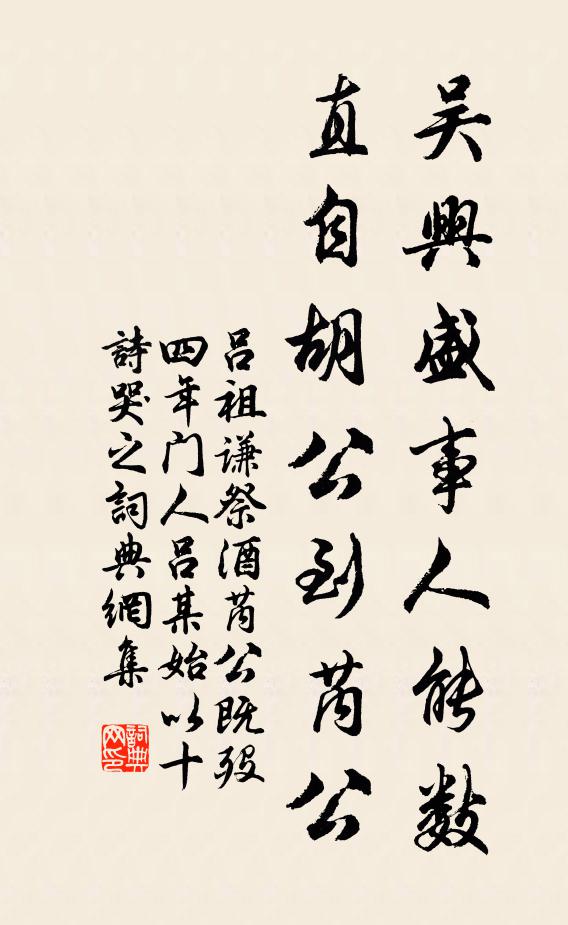 吴興盛事人能數
直自胡公到芮公
吕祖谦祭酒芮公既殁
四年门人吕某始以十
詩哭之詞典網集
詞典
网印